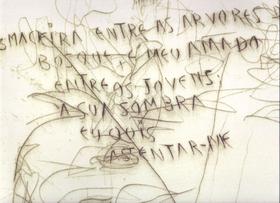 MACIEIRA ENTRE AS ARVORES
BOSQUE É MEU AMADO
ENTRE OS JOVENS;
A SUA SOMBRA
EU QUIS
ASSENTAR-ME